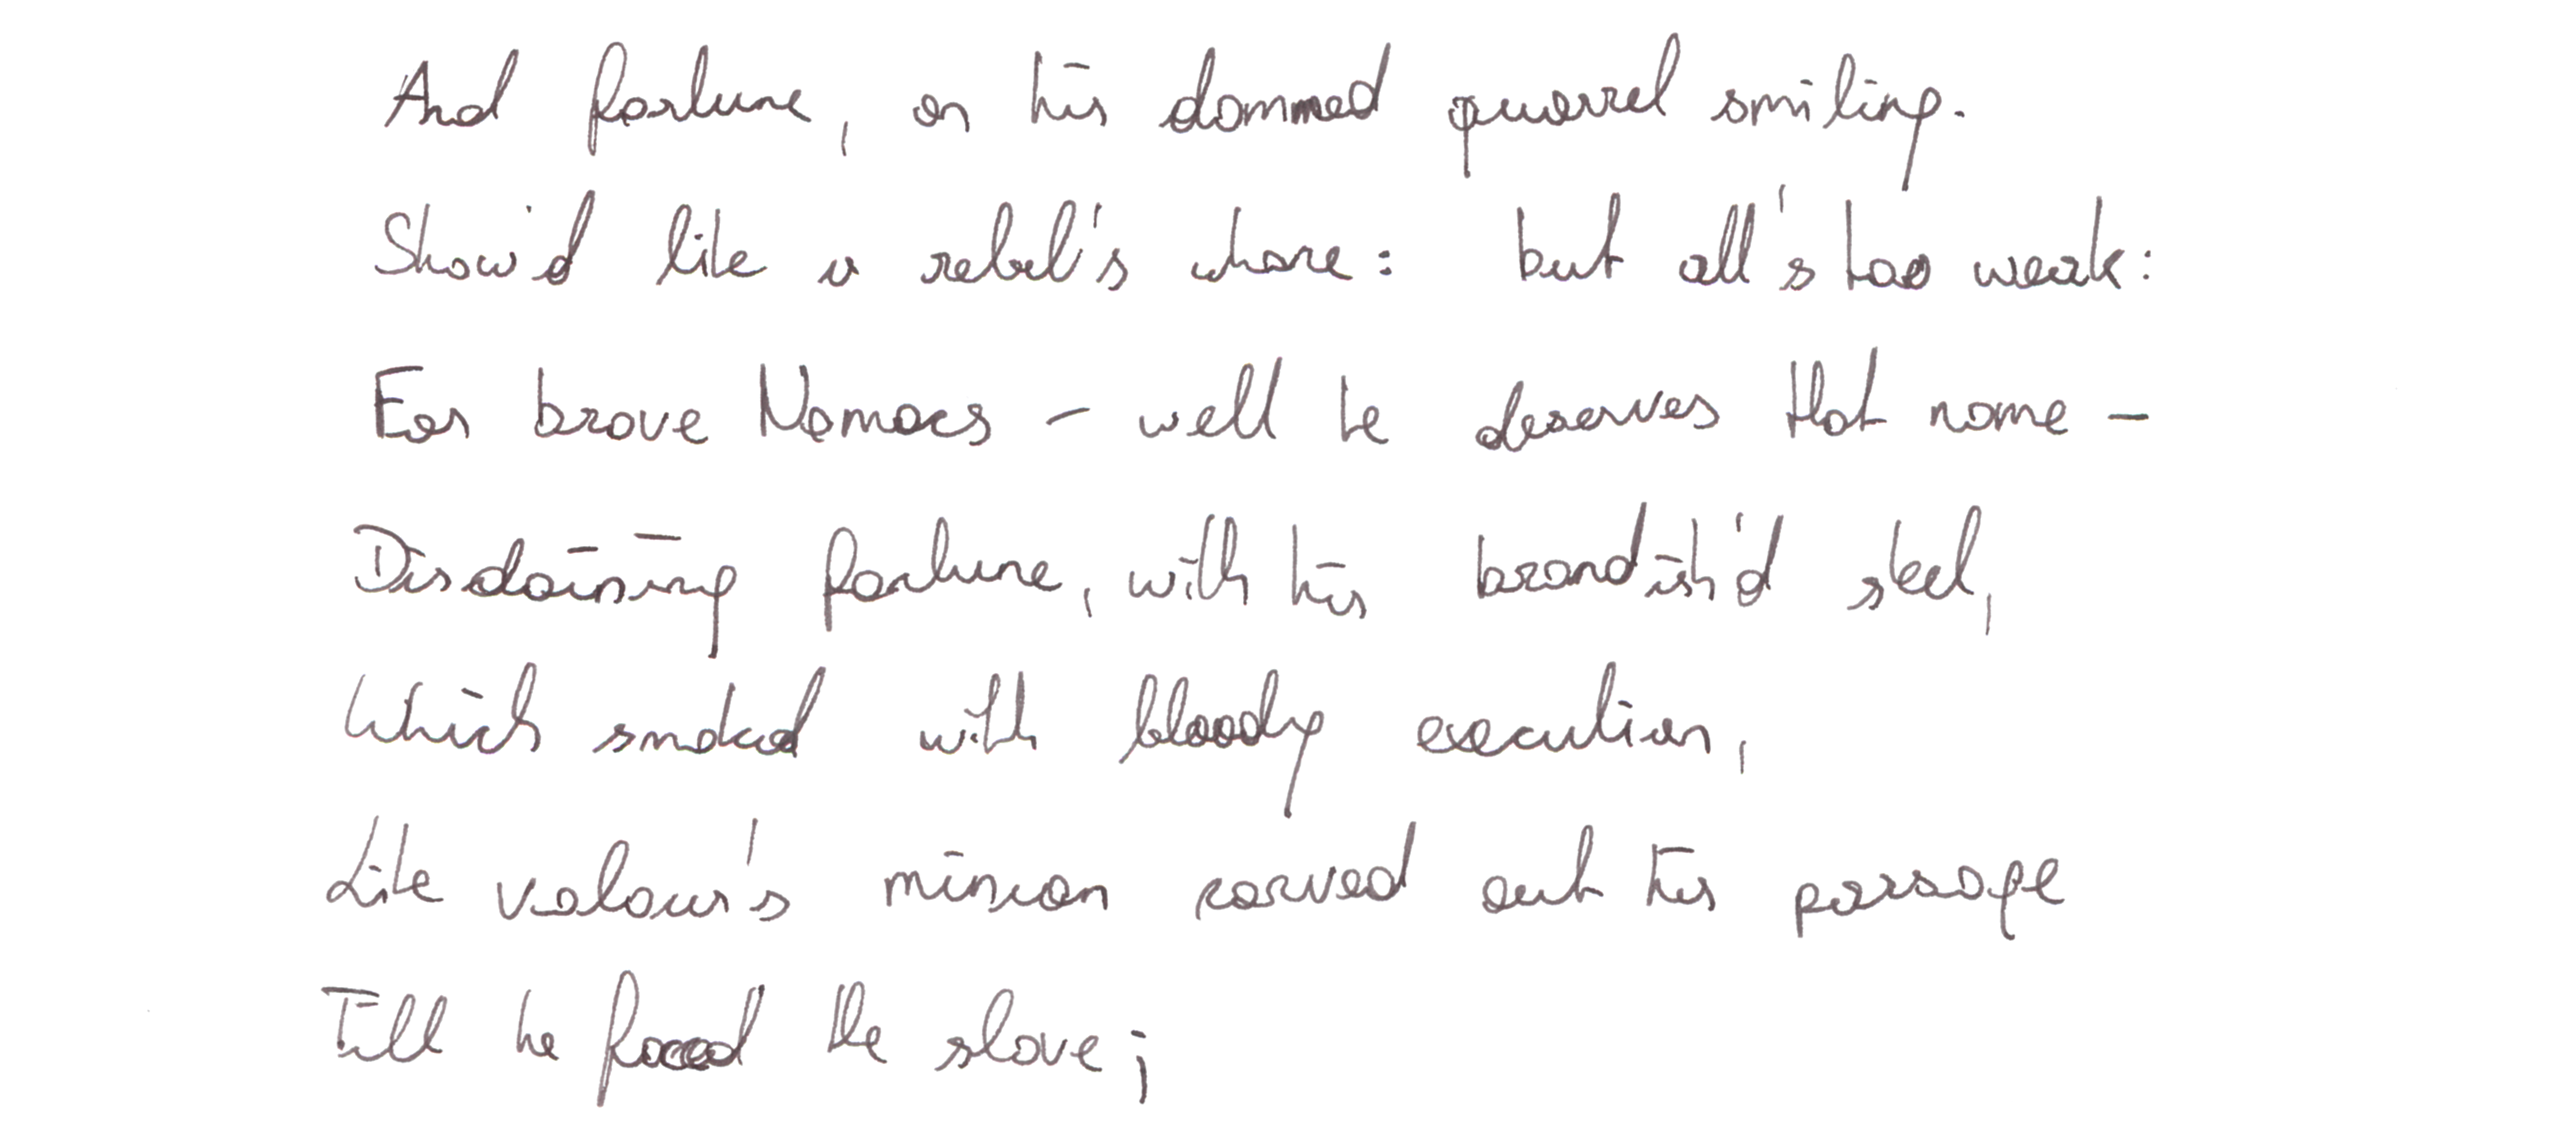 And fortune, on his dammed quarrel smiling.
Show'd like a rebel's whore: but all's too weak:
For brave Nomacs - well he deserves that name -
Disdaining fortune, with his brandish'd steel,
Which smoked with bloody execution,
Like valour's minion carved out his passage
Till he faced the slave;